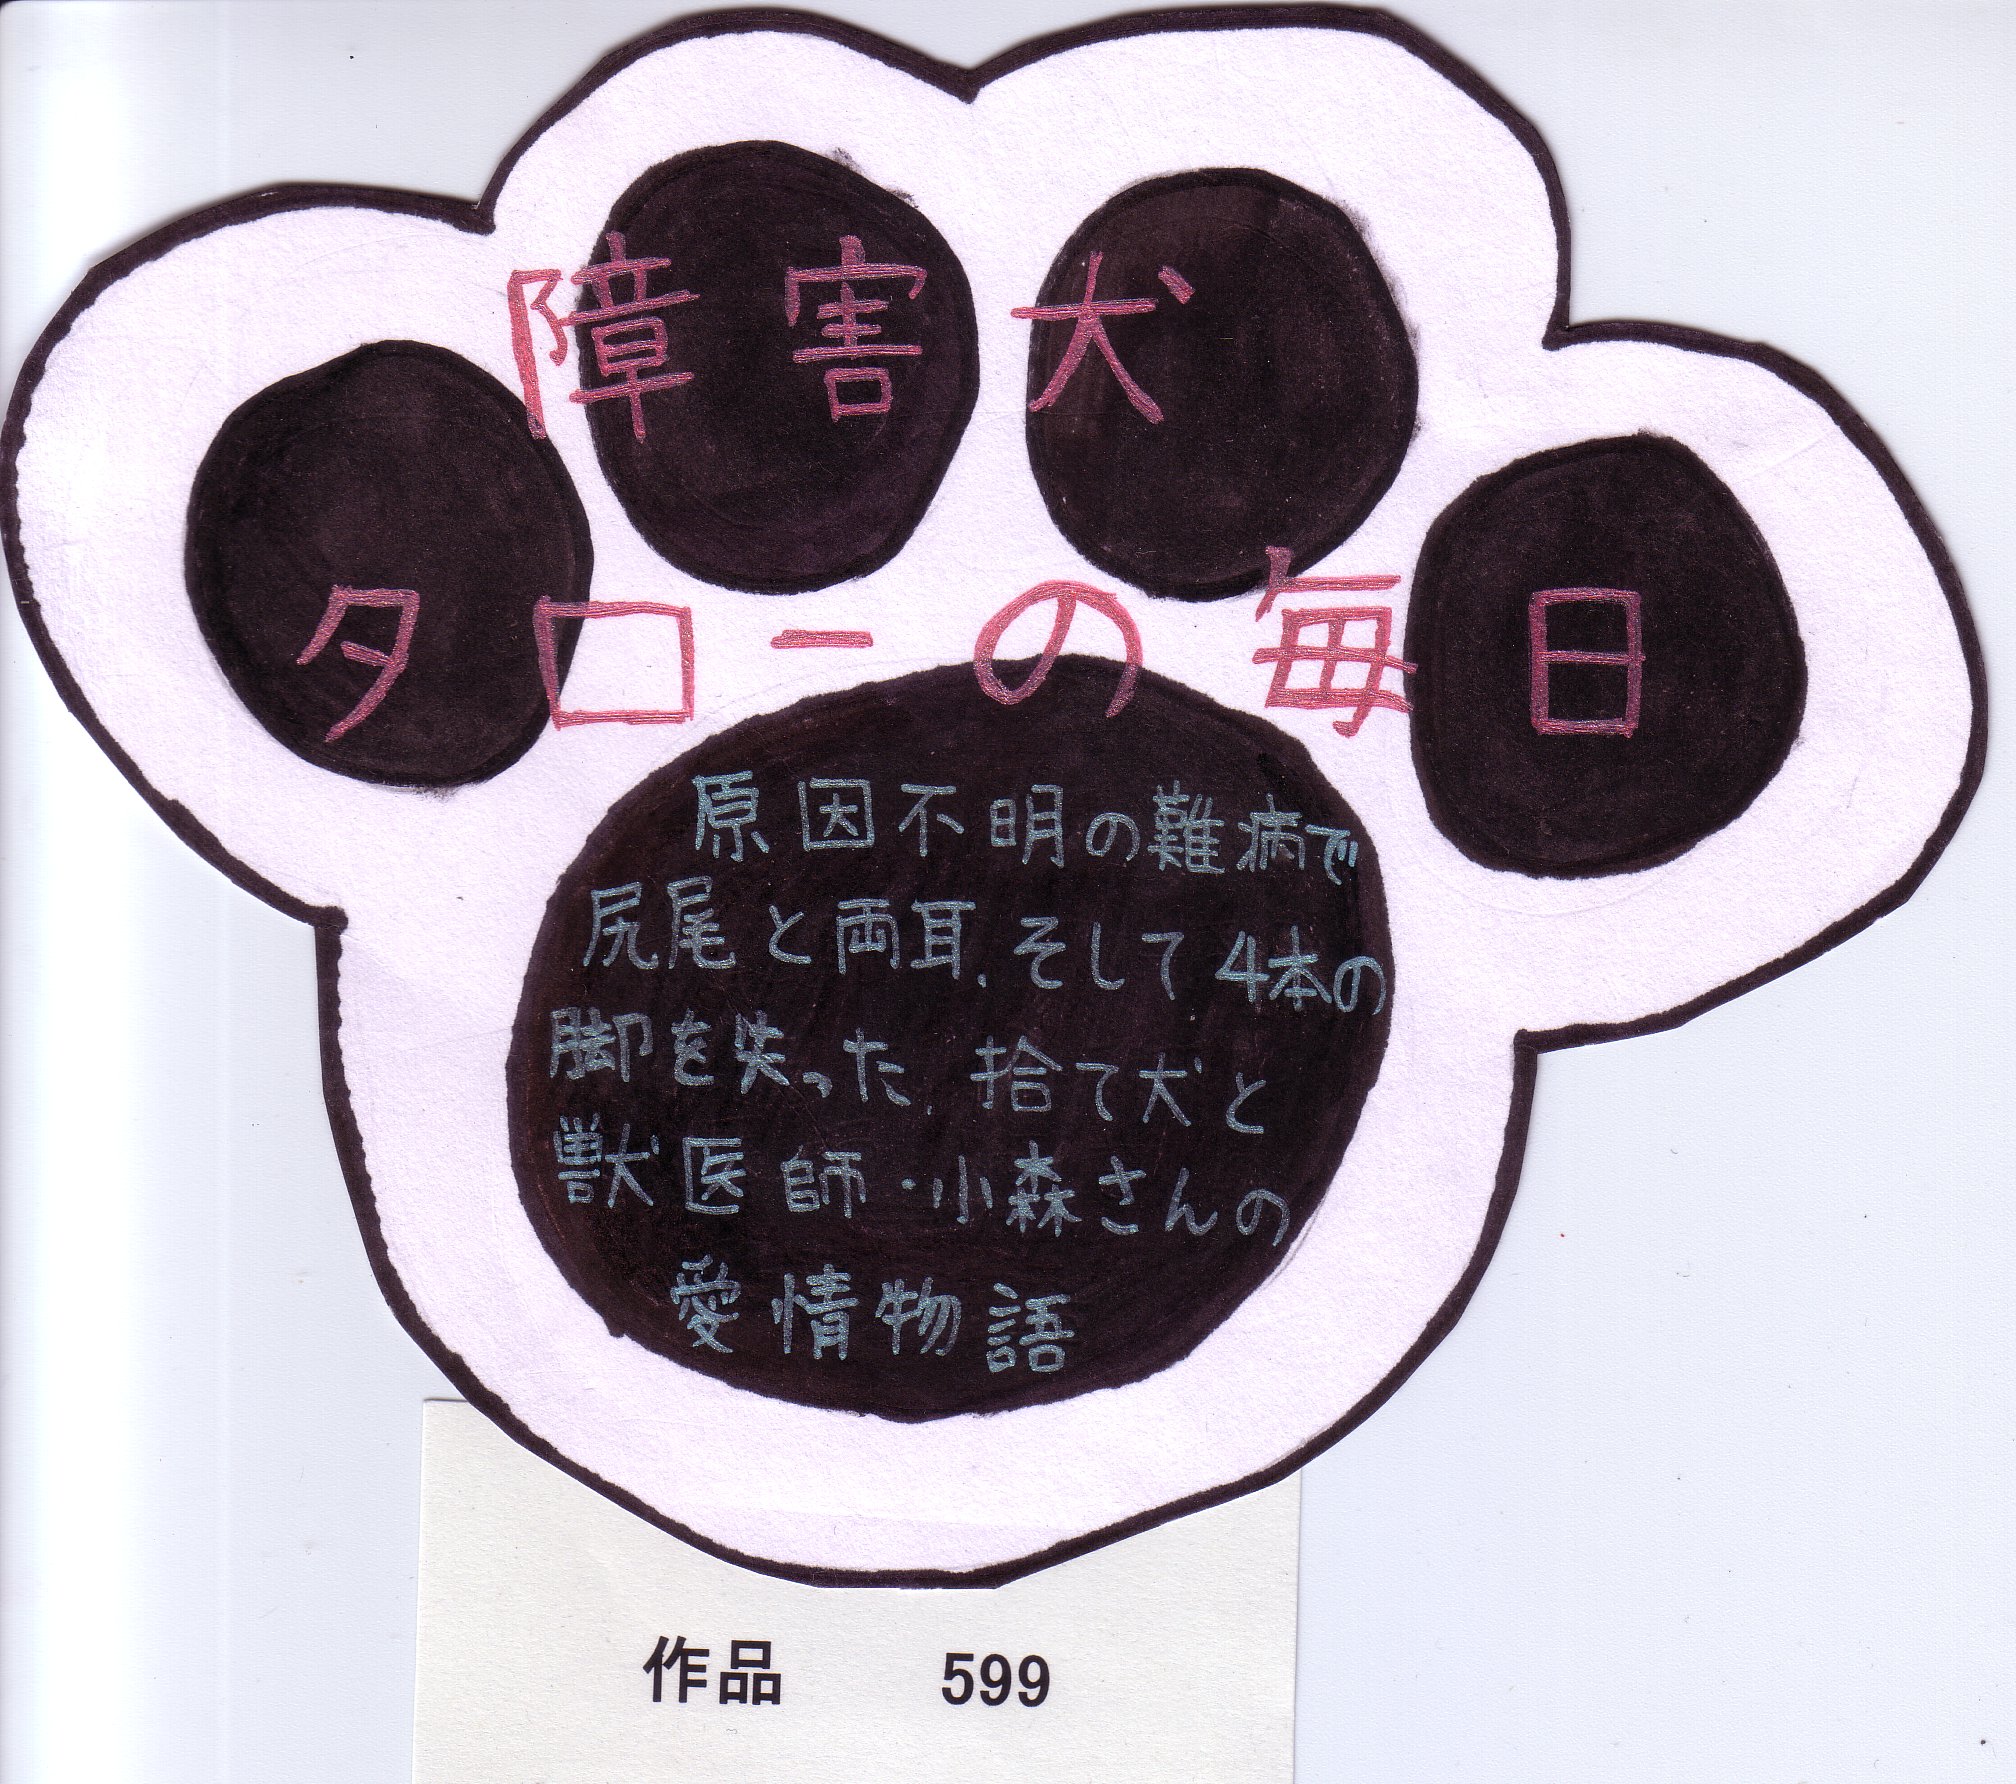 障害犬
タローの毎日
原因不明の難病で
尻尾と両耳、そして4本の
脚を失った、捨て犬と
獣医師・小森さんの
愛情物語
作品 599